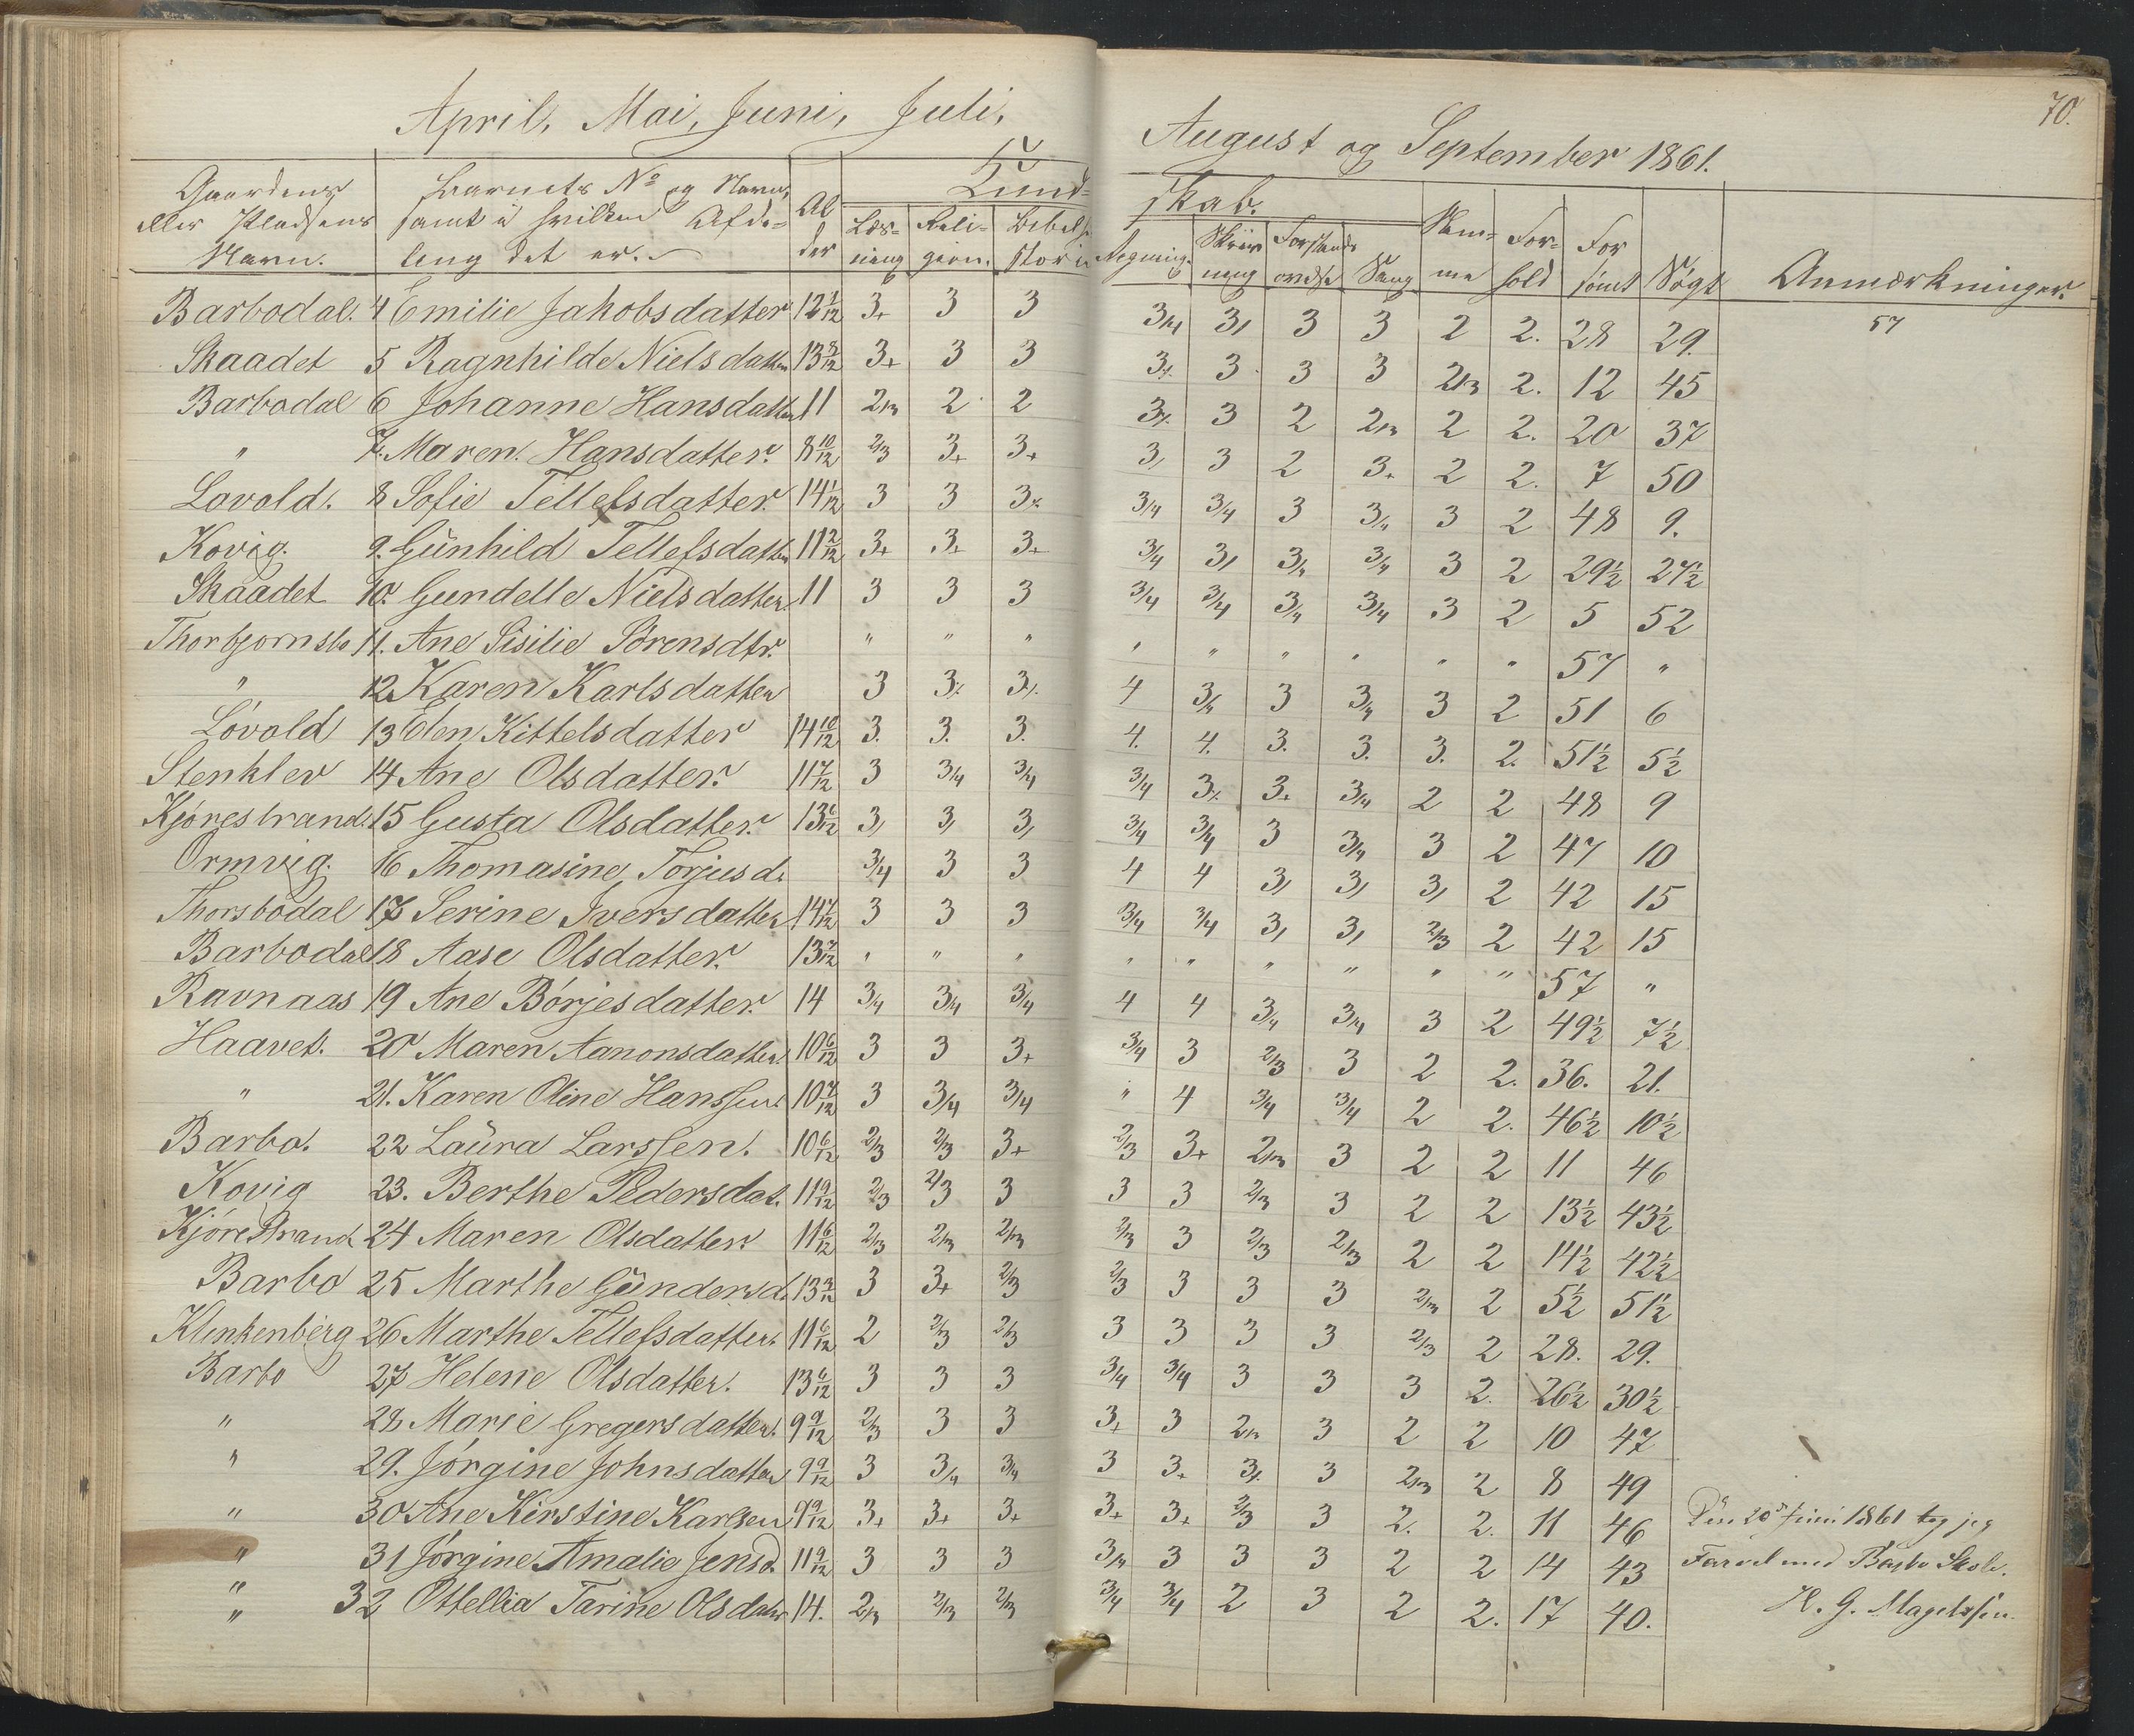 70.
April, Mai, Juni, Juli,
August og September 1861.
Gaardens eller Pladsens Navn. | Barnets No og Navn, samt i hvilken Afdeling det er. | Alder | Kundskab. Læsning | Religion. | Bibelhistorie | Regning. | Skrivning | Forstandsøvelse | Sang | Nemme | Forhold | Forsømt | Søgt | Anmærkninger.
Barbodal. 4 Emilie Jakobsdatter 12 1/12 3+ 3 3 3/4 3/ 3 3 2 2. 28 29. 57
Skaadet 5 Ragnhilde Nielsdatter 13 8/12 3+ 3 3 3/. 3 3 3 2/3 2. 12 45
Barbodal 6 Johanne Hansdatter 11 2/3 2 2 3/. 3 2 2/3 2 2. 20 37
" 7. Maren Hansdatter. 8 10/12 2/3 3+ 3+ 3/ 3 2 3+ 2 2. 7 50
Lovold. 8 Sofie Tellefsdatter. 14 1/12 3 3 3/. 3/4 3/4 3 3/4 3 2 48 9.
Kovig. 9. Gunhild Tellefsdatter 11 2/12 3+ 3+ 3+ 3/4 3/ 3/4 3/4 3 2 29½ 27½
Skaadet 10. Gundelle Nielsdatter. 11 3 3 3 3/4 3/4 3/4 3/4 3 2 5 52
Thorbjørnsbo 11. Ane Sisilie Sörensdtr. " " " " " " " " " 57 "
" 12 Karen Karlsdatter 3 3/. 3/. 4 3/4 3 3/4 3 2 51 6
Lóvold 13 Elen Kittelsdatter 14 10/12 3. 3. 3. 4. 4. 3. 3. 3. 2. 51½ 5½
Stenklev 14 Ane Olsdatter. 11 7/12 3 3/4 3/4 3/4 3/. 3+ 3/4 2 2 48 9
Kjórestrand. 15 Gusta Olsdatter. 13 6/12 3/ 3/ 3/ 3/4 3/4 3 3/4 3 2 47 10
Ormvig. 16 Thomasine Torjusd. 3/4 3 3 4 4 3/ 3/ 3/ 2 42 15
Thorsbodal 17 Serine Iversdatter 14 7/12 3 3 3 3/4 3/4 3/ 3/ 2/3 2 42 15
Barbodal 18 Aase Olsdatter. 13 7/12 " " " " " " " " " 57 "
Ravnaas 19 Ane Börjesdatter. 14 3/4 3/4 3/4 4 4 3/4 3/4 3 2 49½ 7½
Haavet. 20 Maren Aanonsdatter. 10 6/12 3 3 3+ 3/4 3 2/3 3 2 2. 36. 21.
" 21. Karen Oline Hanssen. 10 7/12 3 3/4 3/4 " 4 3/4 3/4 2 2. 46½ 10½
Barbo. 22 Laura Larssen. 10 6/12 2/3 2/3 3+ 2/3 3+ 2/3 3 2 2 11 46
Kovig 23. Berthe Pedersdat. 11 9/12 2/3 2/3 3 3 3 2/3 3 2 2 13½ 43½
Kjórestrand 24 Maren Olsdatter. 11 6/12 2/3 2/3 2/3 2/3 3 2/3 2/3 2 2 14½ 42½
Barbo 25 Marthe Gundersd. 13 3/12 3 3+ 2/3 2/3 3 3 3 2/3 2 5½ 51½
Klinkenberg 26 Marthe Tellefsdatter. 11 6/12 2 2/3 2/3 3 3 3 3 2/3 2 28. 29.
Barbo 27 Helene Olsdatter. 13 6/12 3 3 3 3/4 3/4 3 3 3 2. 26½ 30½
" 28 Marie Gregersdatter. 9 9/12 2/3 3 3 3+ 3 2/3 3 2 2 10 47
" 29. Jórgine Johnsdatter 9 9/12 3 3/4 3/4 3 3+ 3/. 3 2/3 2 8 49
" 30 Ane Kirstine Karlsen 9 9/12 3+ 3+ 3+ 3+ 3+ 2/3 3 2. 2. 11 46 Den 20de Juni 1861 tog jeg
" 31 Jórgine Amalie Jensd. 11 9/12 3 3 3 3/4 3 3 3 2 2 14 43 Farvel med Barbo Skole.
" " 32 Ottellia Tarine Olsdatr 14. 2/3 2/3 2/3 3/4 3/4 2 3 2 2. 17 40. H. G. Magelssen.